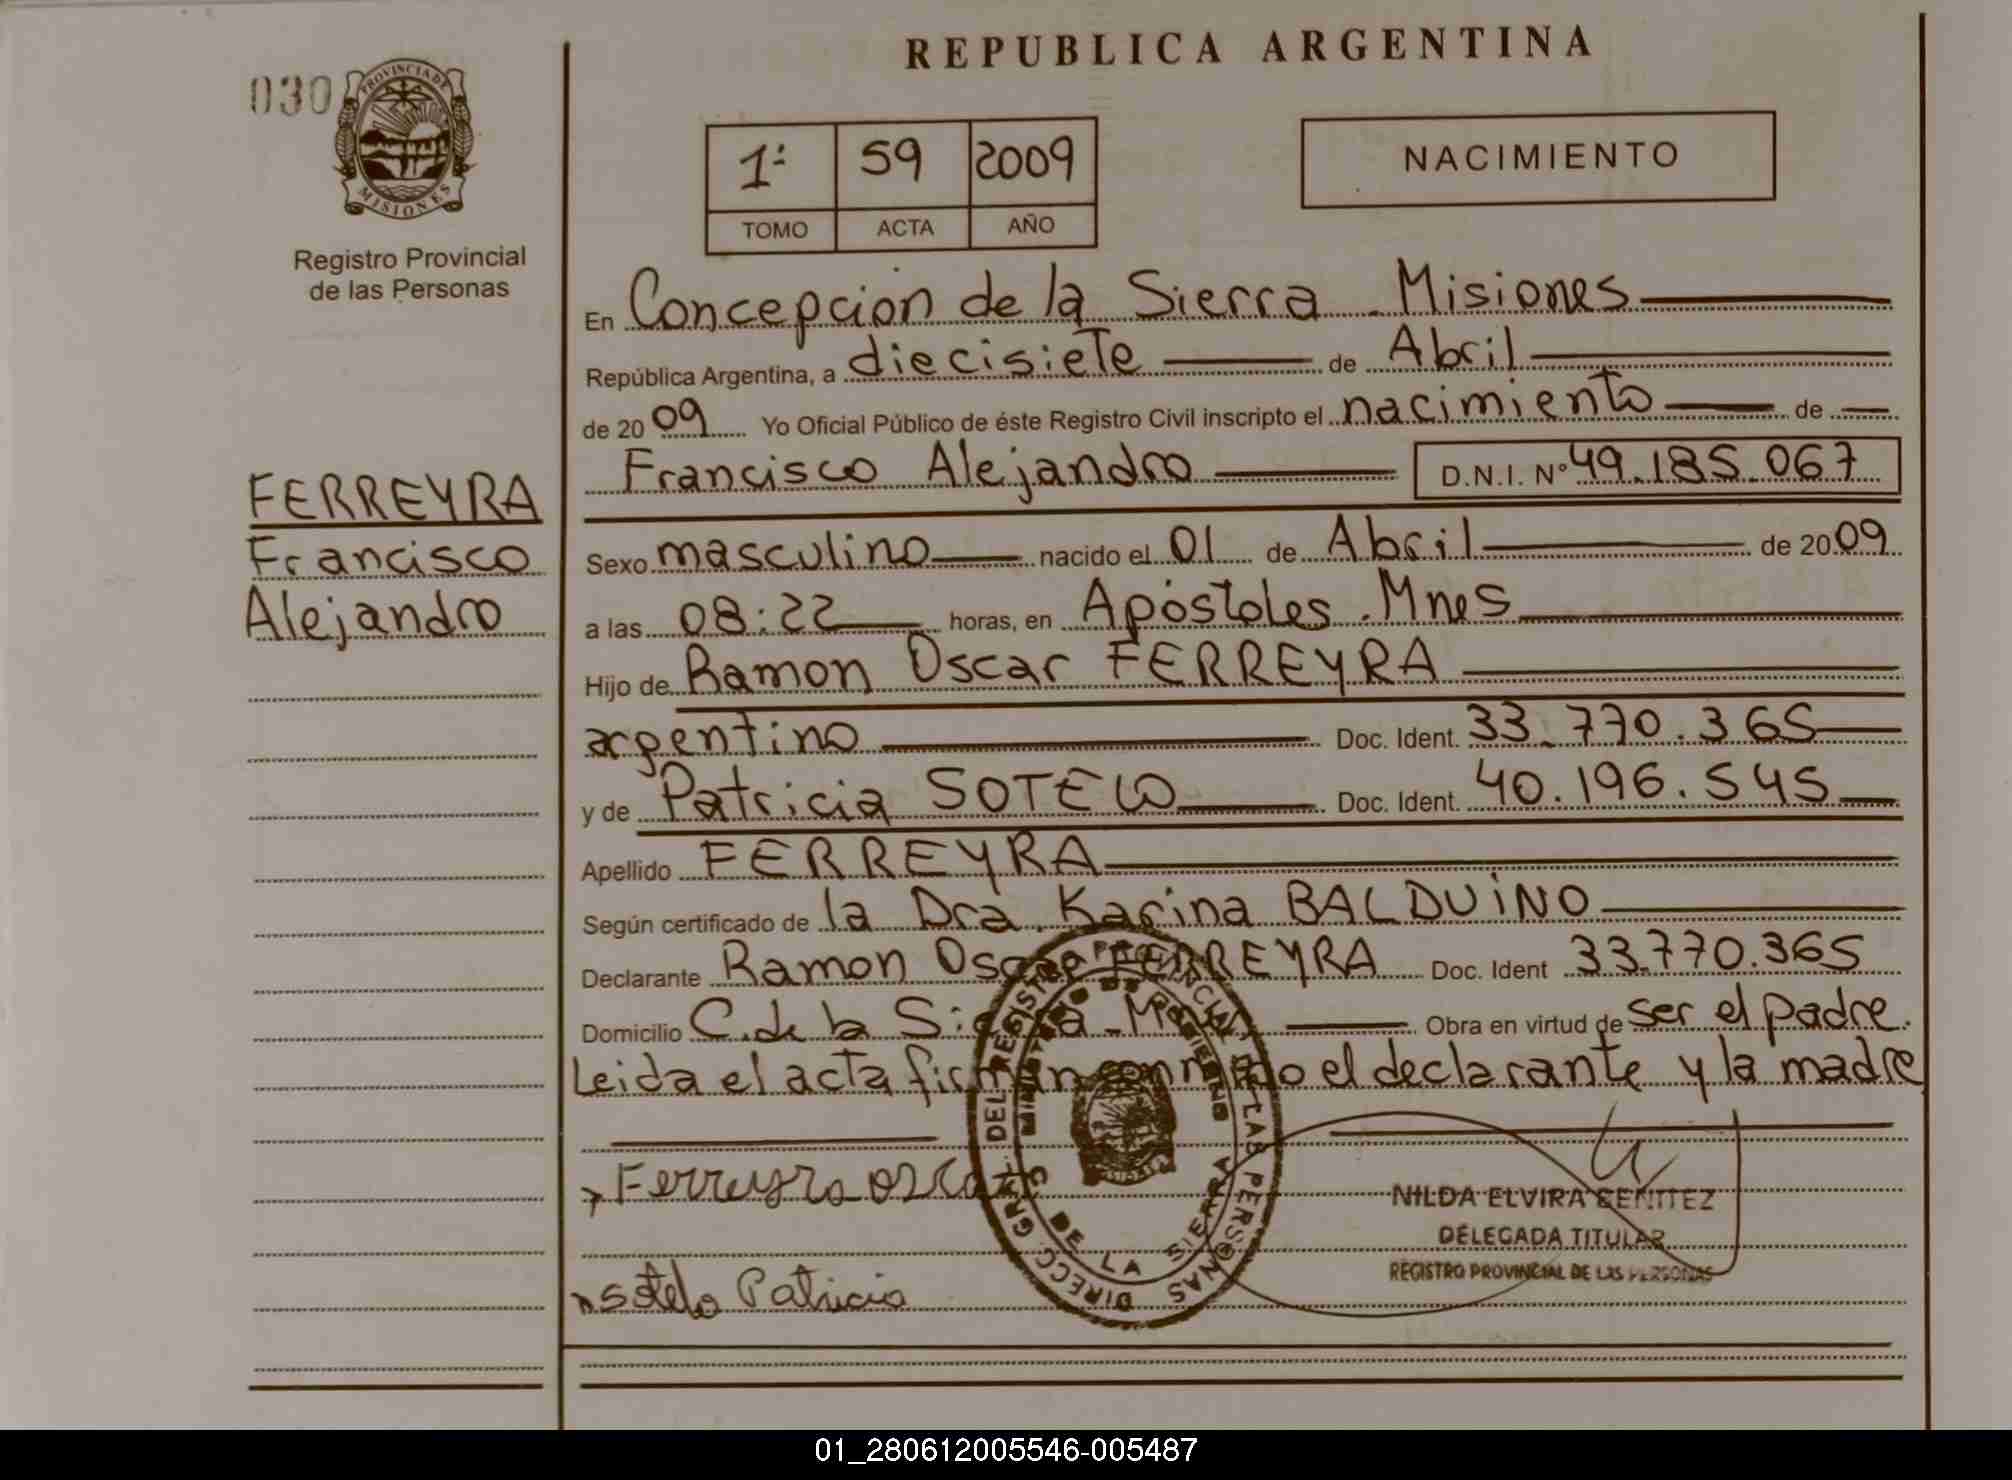 REPUBLICA ARGENTINA
030
PROVINCIA DE
MISIONES
Registro Provincial
de las Personas
1ª 59 2009
TOMO ACTA AÑO
NACIMIENTO
En Concepcion de la Sierra - Misiones
República Argentina, a diecisiete de Abril
de 2009 Yo Oficial Público de éste Registro Civil inscripto el nacimiento de
Francisco Alejandro D.N.I. Nº 49.185.067
FERREYRA
Francisco
Alejandro
Sexo masculino nacido el 01 de Abril de 2009
a las 08:22 horas, en Apóstoles. Mnes
Hijo de Ramon Oscar FERREYRA
argentino Doc. Ident. 33.770.365
y de Patricia SOTELO Doc. Ident. 40.196.545
Apellido FERREYRA
Según certificado de la Dra. Karina BALDUINO
Declarante Ramon Oscar FERREYRA Doc. Ident 33.770.365
Domicilio C. de la Sierra - Obra en virtud de ser el padre.
Leida el acta firman el declarante y la madre
Ferreyra oscar
sotelo Patricia
DIRECC. GRAL. DEL REGISTRO PROVINCIAL DE LAS PERSONAS
MINISTERIO DE GOBIERNO
C. DE LA SIERRA
NILDA ELVIRA BENITEZ
DELEGADA TITULAR
REGISTRO PROVINCIAL DE LAS PERSONAS
01_280612005546-005487